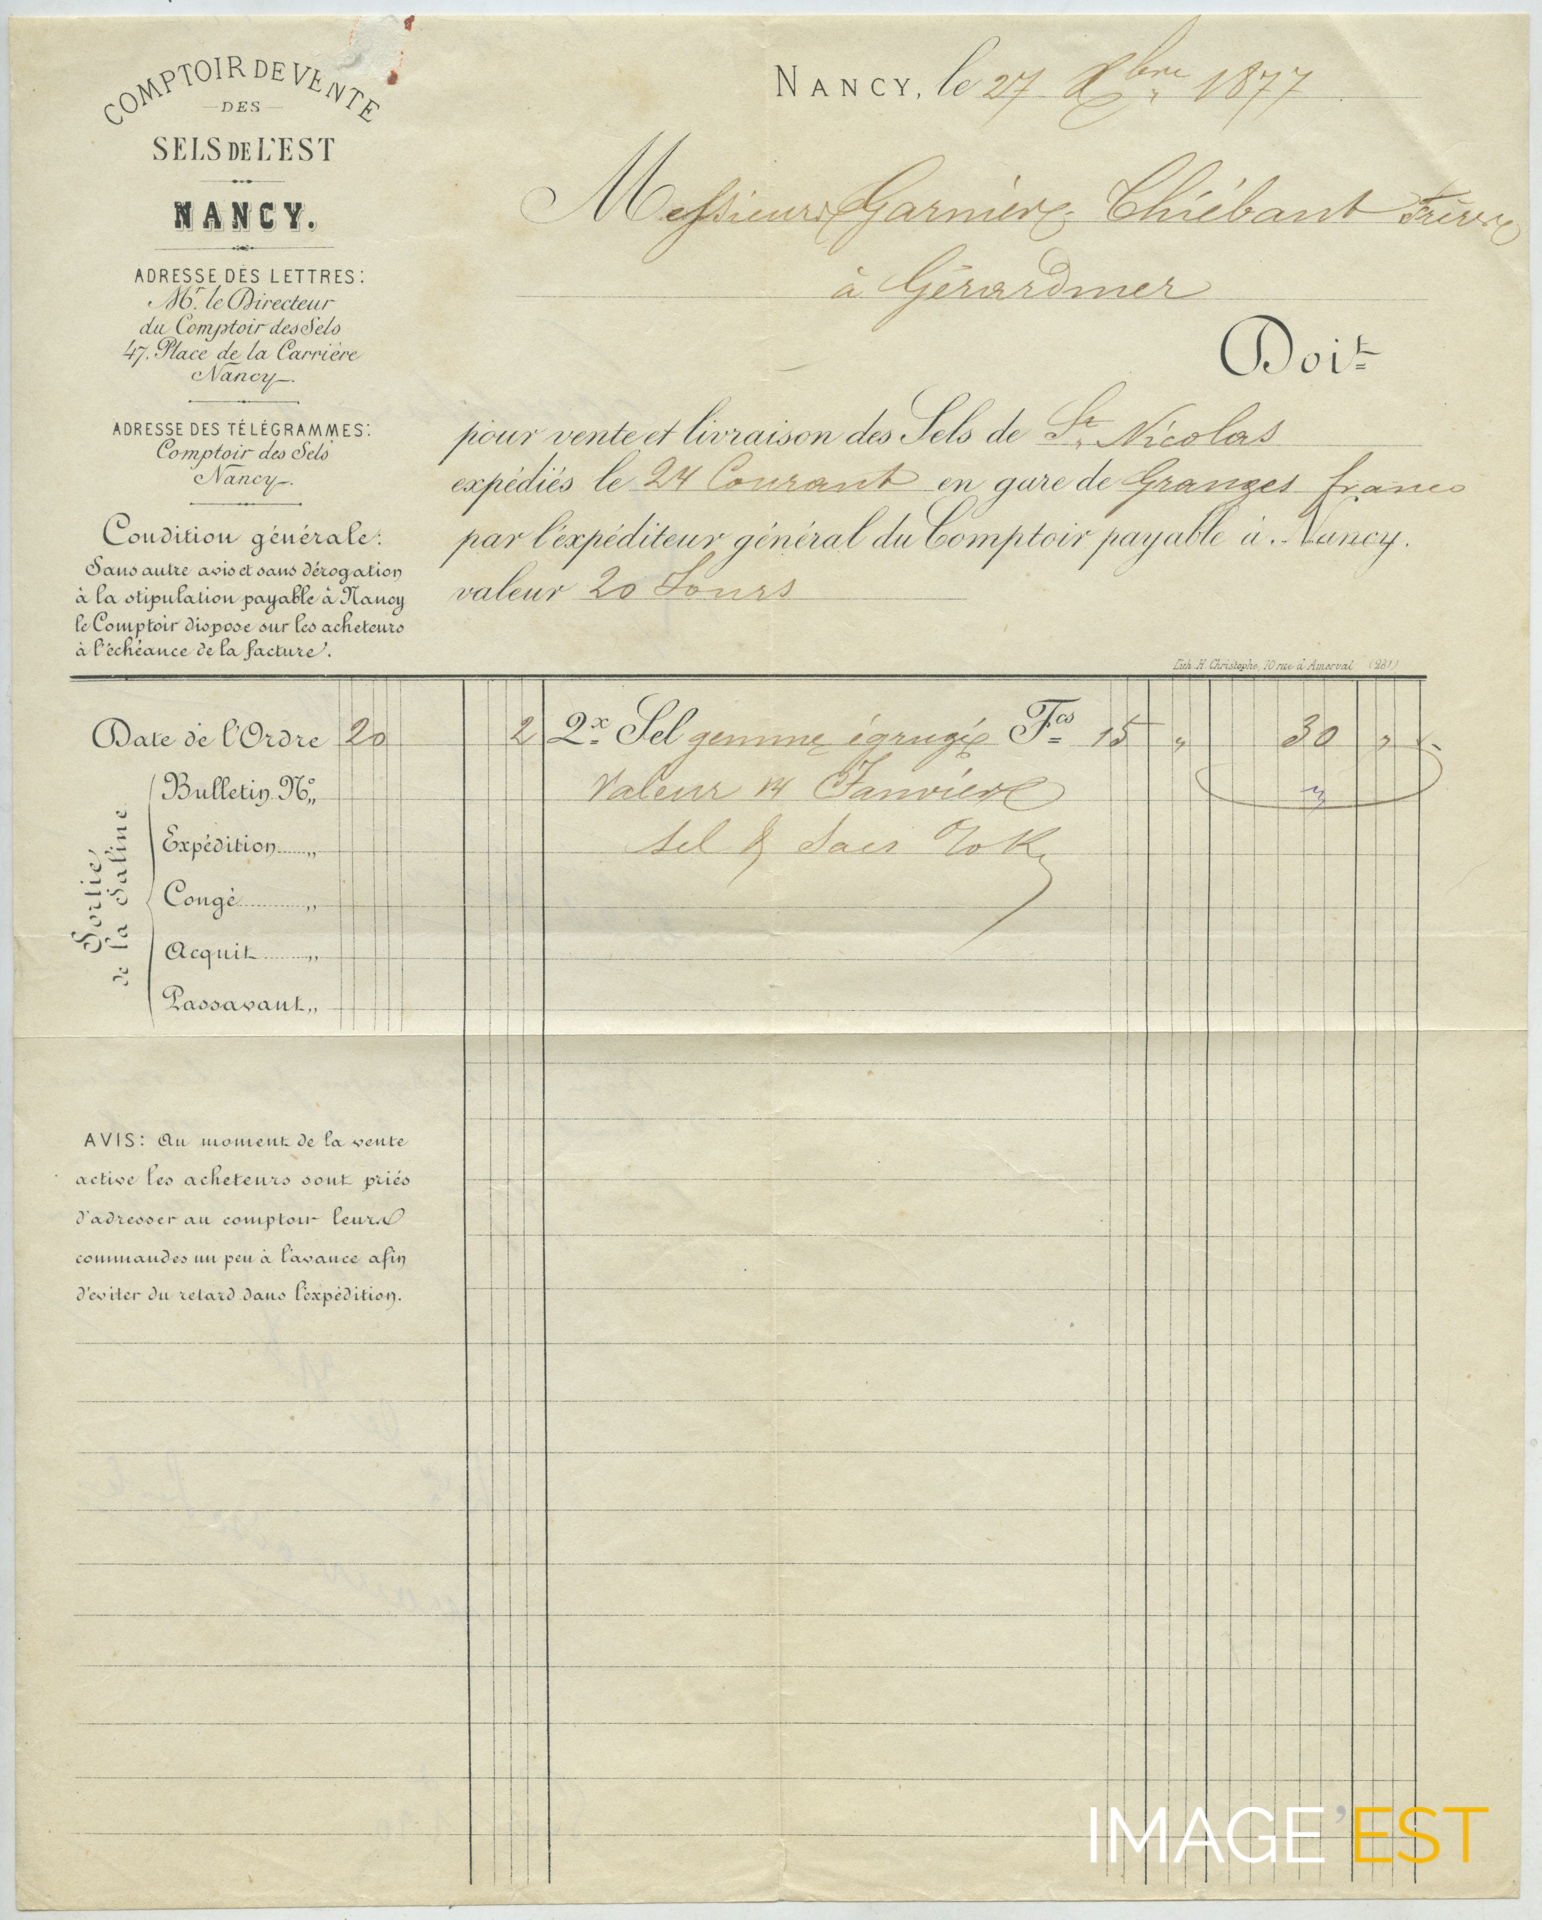 COMPTOIR DE VENTE
DES
SELS DE L'EST
NANCY.
ADRESSE DES LETTRES:
Mr. le Directeur
du Comptoir des Sels
47. Place de la Carrière
Nancy.
ADRESSE DES TÉLÉGRAMMES:
Comptoir des Sels
Nancy.
Condition générale:
Sans autre avis et sans dérogation
à la stipulation payable à Nancy
le Comptoir dispose sur les acheteurs
à l'échéance de la facture.
NANCY, le 27 Xbre 1877
Messieurs Garnier, Thiébaut Frères
à Gérardmer
Doit
pour vente et livraison des Sels de St. Nicolas
expédiés le 24 Courant en gare de Granges franco
par l'expéditeur général du Comptoir payable à Nancy.
valeur 20 Jours
Lith. H. Christophe, 10 rue d'Amerval (281)
Date de l'Ordre 20 2 2x Sel gemme égrugé Fcs 15 " 30 "
Bulletin No. Valeur 14 Janvier
Expédition " sel & sacs
Congé "
Acquit "
Passavant "
Sortie
de la Saline
AVIS: Au moment de la vente
active les acheteurs sont priés
d'adresser au comptoir leurs
commandes un peu à l'avance afin
d'eviter du retard dans l'expédition.
IMAGE'EST